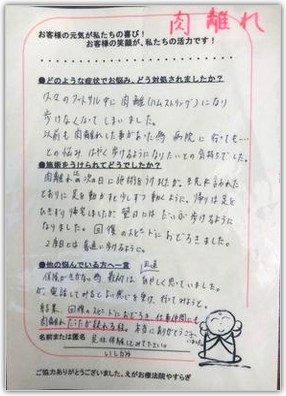 肉離れ
お客様の元気が私たちの喜び！
お客様の笑顔が、私たちの活力です！
●どのような症状でお悩み、どう対処されましたか？
久々のフットサル中に肉離(ハムストリング)になり
歩けなくなってしまいました。
以前も肉離れした事があった為 病院に行っても…
との悩み はやく歩けるようになりたいとの気持ちでした。
●施術をうけられてどうでしたか？
肉離れの次の日に施術をうけましたが、
とおりに足を動かすと少しずつ動くように、帰りは足を
ひきずり帰宅しましたが 翌日には だいぶ歩けるように
なりました。回復のスピードにおどろきました。
2度目には普通に歩けるように。
●他の悩んでいる方へ一言
保険がきかない為 最初は あやしく思っていました
が、電話してみると良い感じを受け、行ってみようと。
結果、回復のスピードにおどろき、仕事仲間にも
肉離れだったか疑われる程。本当にありがとうござ
いました。
お名前または匿名
いしかわ
ご協力ありがとうございました。えがお療法院やすらぎ